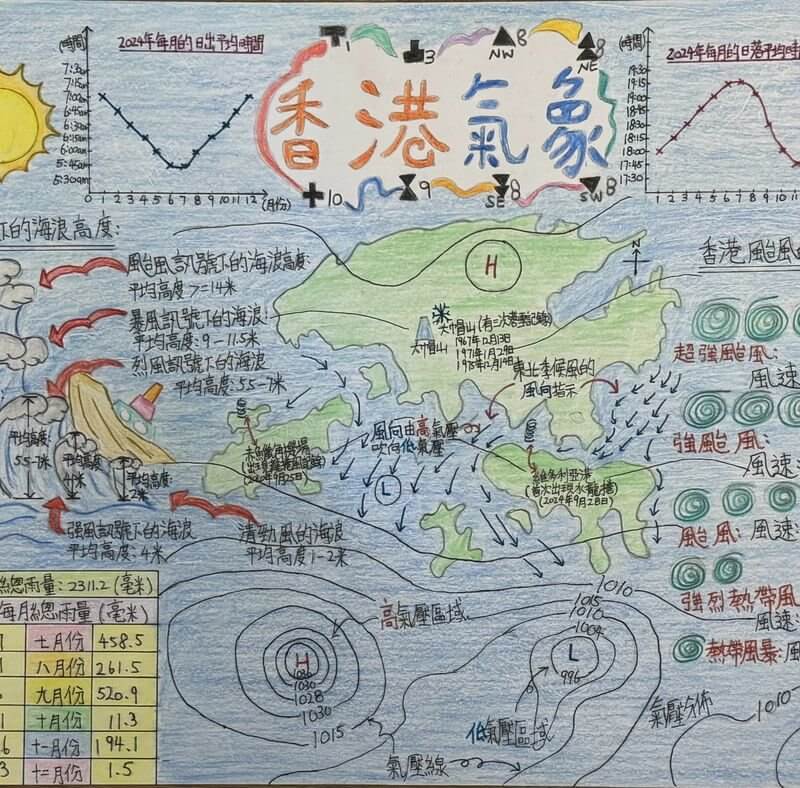 2024年每月的日出平均時間
(時間)
7:30am
7:15am
7:00am
6:45am
6:30am
6:15am
6:00am
5:45am
5:30am
0 1 2 3 4 5 6 7 8 9 10 11 12 (月份)
1
3
NW 8
8 NE
香港氣象
10
9
SE 8
SW 8
2024年每月的日落平均時
(時間)
19:30
19:15
19:00
18:45
18:30
18:15
18:00
17:45
17:30
1 2 3 4 5 6 7 8 9 10 11
下的海浪高度:
颱風訊號下的海浪高度:
平均高度>=14米
暴風訊號下的海浪:
平均高度:9-11.5米
烈風訊號下的海浪
平均高度:5.5-7米
平均高度:
5.5-7米
平均高度:
4米
平均高度:
2米
強風訊號下的海浪
平均高度:4米
清勁風的海浪
平均高度1-2米
H
N
大帽山
1967年12月13日
1971年1月29日
1975年12月14日
大帽山
東北季候風的
風向指示
風向由高氣壓
吹向低氣壓
L
(2024年9月25日)
維多利亞港
(首次出現水龍捲)
(2024年9月28日)
香港颱風的
超強颱風:
風速
強颱風:
風速:
颱風:風速:
強烈熱帶風
風速:
熱帶風暴:風
總雨量:2311.2(毫米)
每月總雨量(毫米)
七月份 458.5
八月份 261.5
九月份 520.9
十月份 11.3
十一月份 194.1
十二月份 1.5
高氣壓區域
H
1036
1030
1028
1030
1015
1010
1015
1010
1004
L
996
低氣壓區域
氣壓線
氣壓分佈
1010